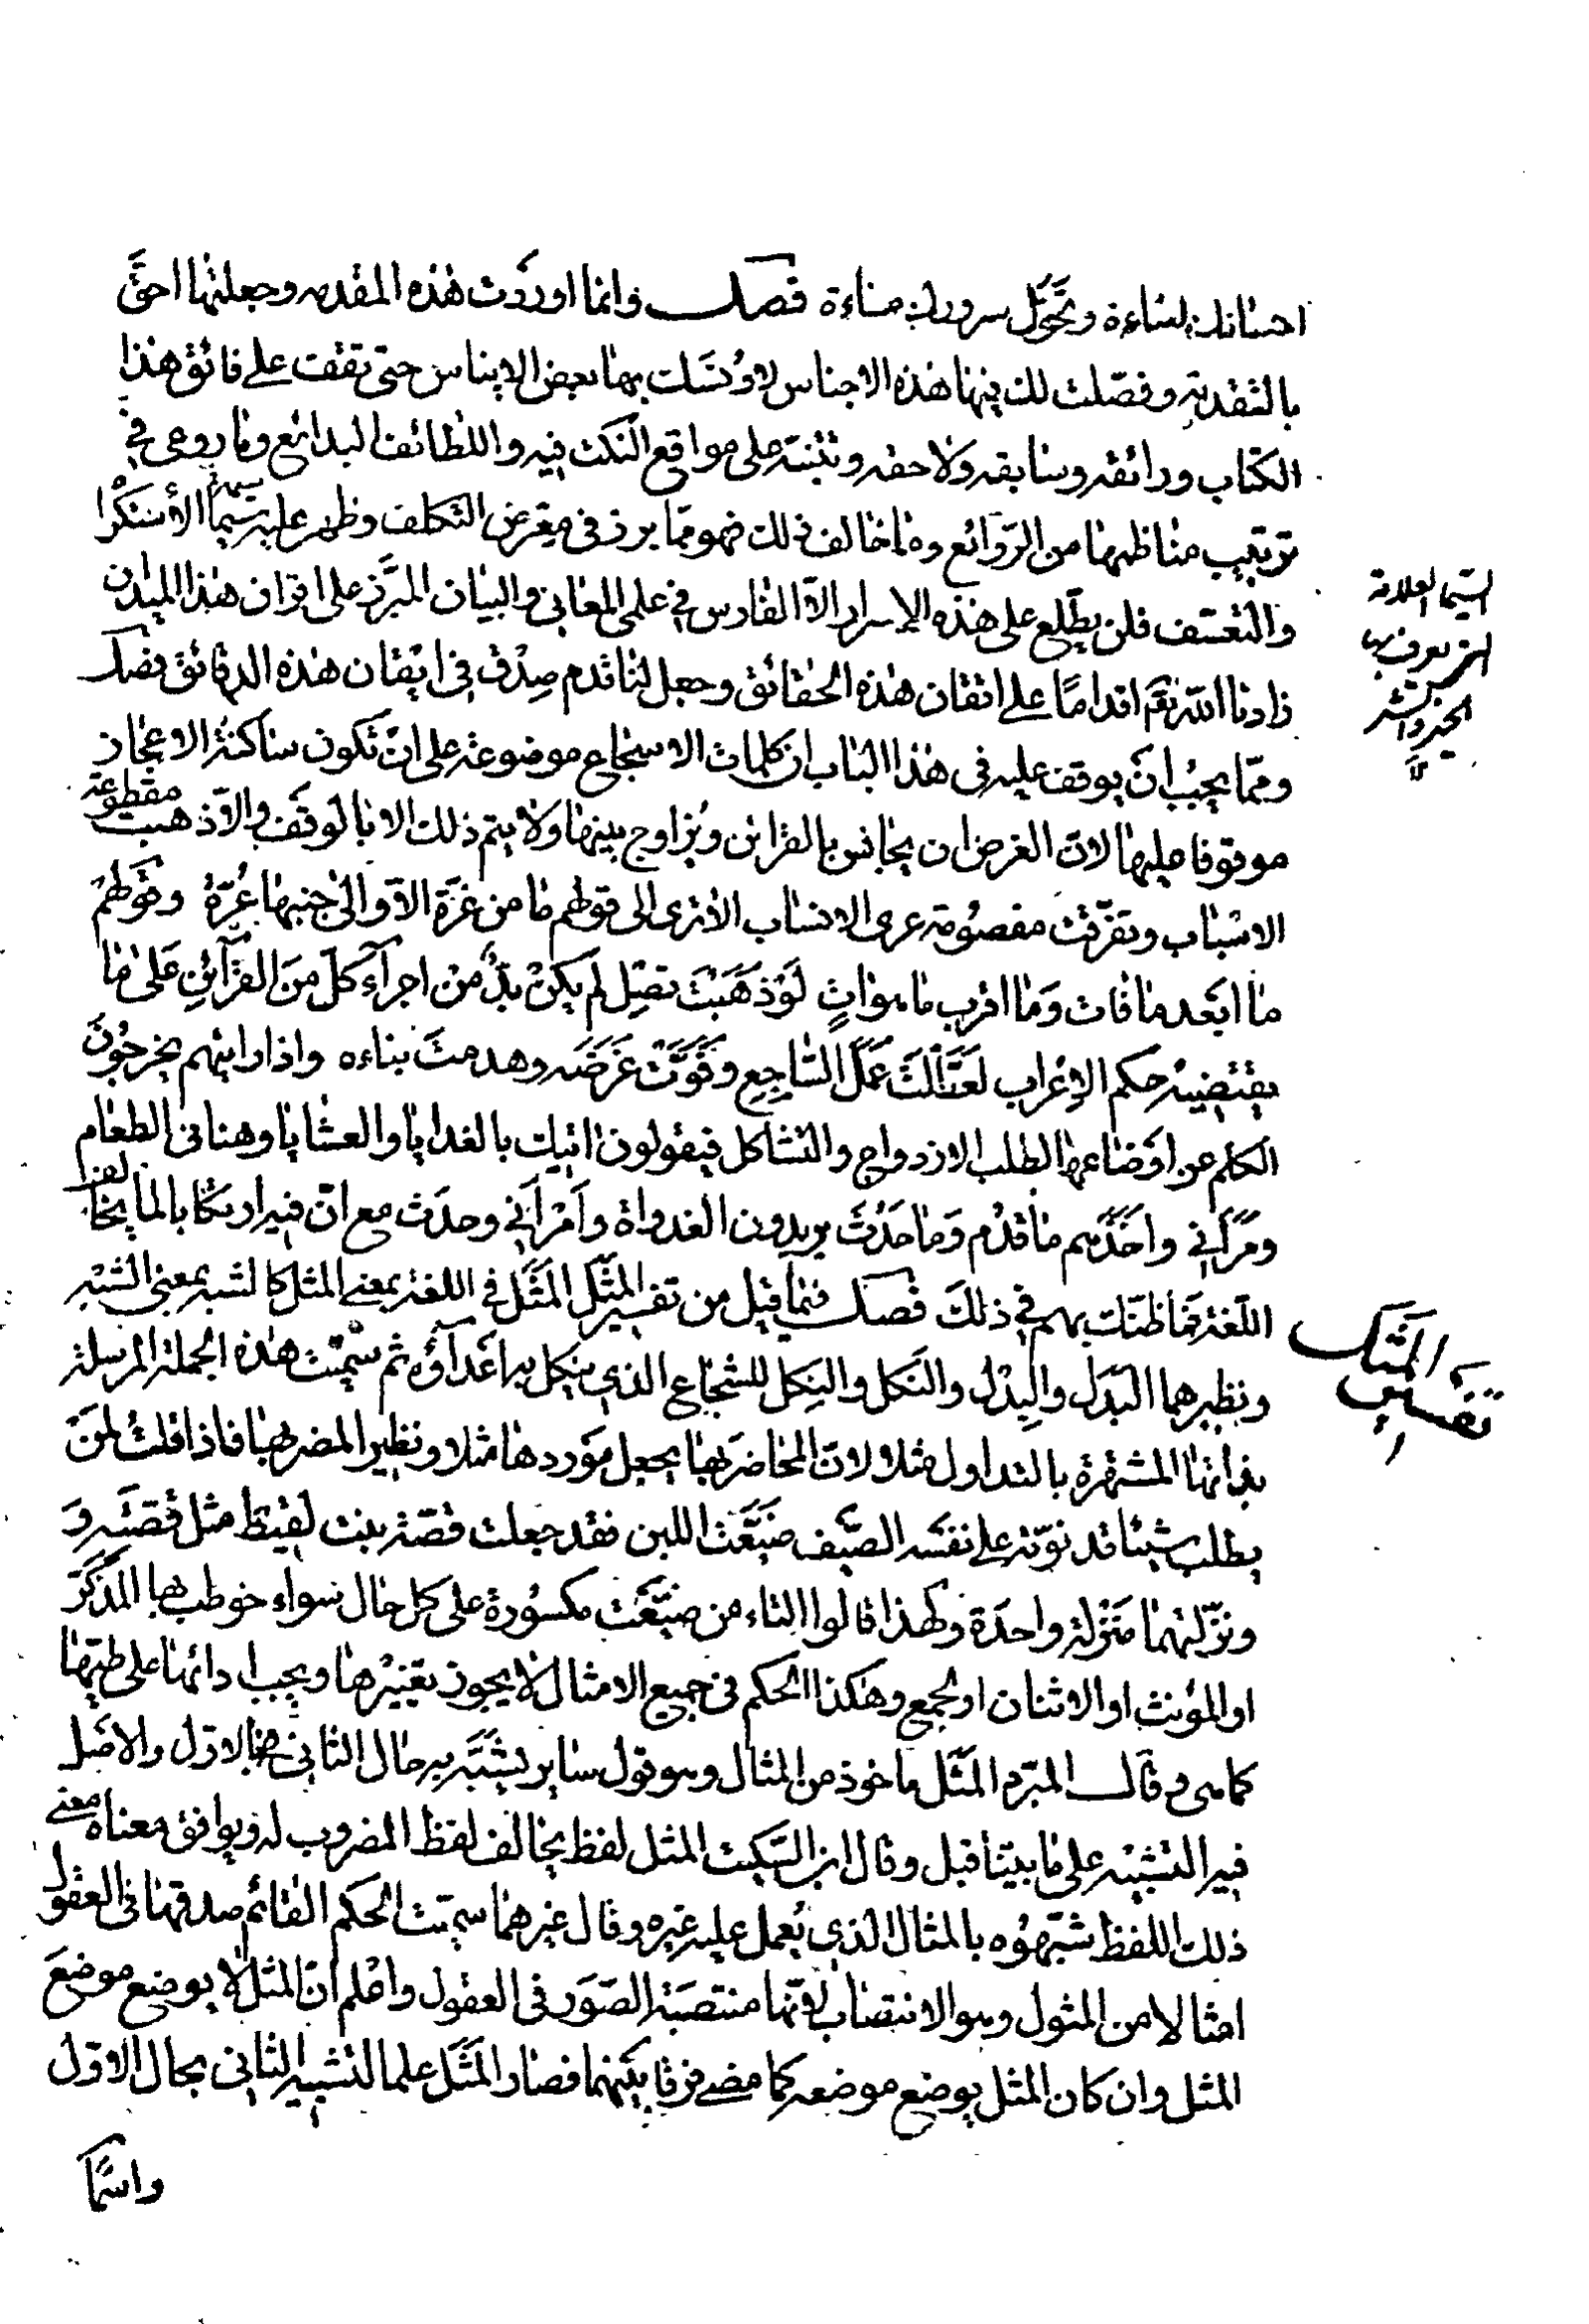 احسانك بساءة وتحوّل سرورك مساءة فصل وانما اوردت هذه المقدمه وجعلتها احقّ
بالتقدمة وفصّلت لك فيها هذه الاجناس لاونسك بها بعض الايناس حتى تقف على فائق هذا
الكتاب ورائقه وسابقه ولاحقه وتنبّه على مواقع النكت فيه واللطائف البدائع وما روعى فى
ترتيب مناظمها من الروائع وما خالف ذلك فهو ممّا برز فى معرض التكلف وظهر عليه سيما الاستكرا
والتعسف فلن يطّلع على هذه الاسرار الّا الفارس فى علمى المعانى والبيان المبرّز على اقران هذا الميدان
زادنا الله تعم اقداما على اتقان هذه الحقائق وجعل لنا قدم صِدْق فى ايقان هذه الدقائق فصل
وممّا يجب ان يوقف عليه فى هذا الباب ان كلمات الاسجاع موضوعة على ان تكون ساكنة الاعجاز
موقوفا عليها لانّ الغرض ان يجانس بالقرائن ويزاوج بينها ولا يتم ذلك الا بالوقف والّا ذهبت
مقطوعة
الاسباب وتفرّقت مفصومة عرى الانساب الا ترى الى قولهم ما من غرّة الّا والى جنبها عُرّة وقولهم
ما ابعد ما فات وما اقرب ما هو اتٍ لو ذهبت تصل لم يكن بدّ من اجراء كل من القرائن على ما
يقتضيه حكم الاعراب لعطّلت عمل الساجع وفوّتّ غرضه وهدمت بناءه واذا رايتهم يخرجون
الكلم عن اوضاعها لطلب الازدواج والتشاكل فيقولون اتيك بالغدايا والعشايا وهنانى الطعام
ومرانى واخذهم ما قدم وما حدث يريدون الغدواة وامرانى وحدث مع ان فيه ارتكابا لما يخالف
اللغة فما ظنك بهم فى ذلك فصل فيما قيل من تفسير المثل المثل فى اللغة بمعنى المثل كالشبه بمعنى الشبه
ونظيرهما البَدَل والبِدْل والنَكل والنِكل للشجاع الذى ينكل به اعداؤه ثم سمّيت هذه الجملة المرسلة
بذاتها المشتهرة بالتداول مثلا لانّ المحاضر بها يجعل موردها مثلا ونظيرا لمضربها فاذا قلت لمن
يطلب شيئا قد فوّته على نفسه الصيف ضيّعت اللبن فقد جعلت قصّة بنت لقيط مثل قصّته و
ونزّلتهما منزلة واحدة ولهذا قالوا التاء من ضيّعت مكسورة على كل حال سواء خوطب بها المذكر
او المؤنث او الاثنان او الجمع وهكذا الحكم فى جميع الامثال لا يجوز تغييرها ويجب ادائها على طيتها
كما هى وقال المبرّد المثل ماخوذ من المثال وهو قول سایر يشبّه به حال الثانى بالاول والاصل
فيه التشبيه على ما بيّنا قبل وقال ابن السكيت المثل لفظ يخالف لفظ المضروب له ويوافق معناه معنى
ذلك اللفظ شبّهوه بالمثال الذى يُعمل عليه غيره وقال غيرهما سمّيت الحكم القائم صدقها فى العقول
امثالا من المثول وهو الانتصاب لانّها منتصبة الصّوَر فى العقول واعلم انّ المثل لا يوضع موضع
المثل وان كان المثل يوضع موضعه كما مضى فرقا بينهما فصار المثل علما لتشبيه الثانى بحال الاول
واسمًا
السيما العلامة
التى يعرف بها
الخير والشر
تفسير المثل